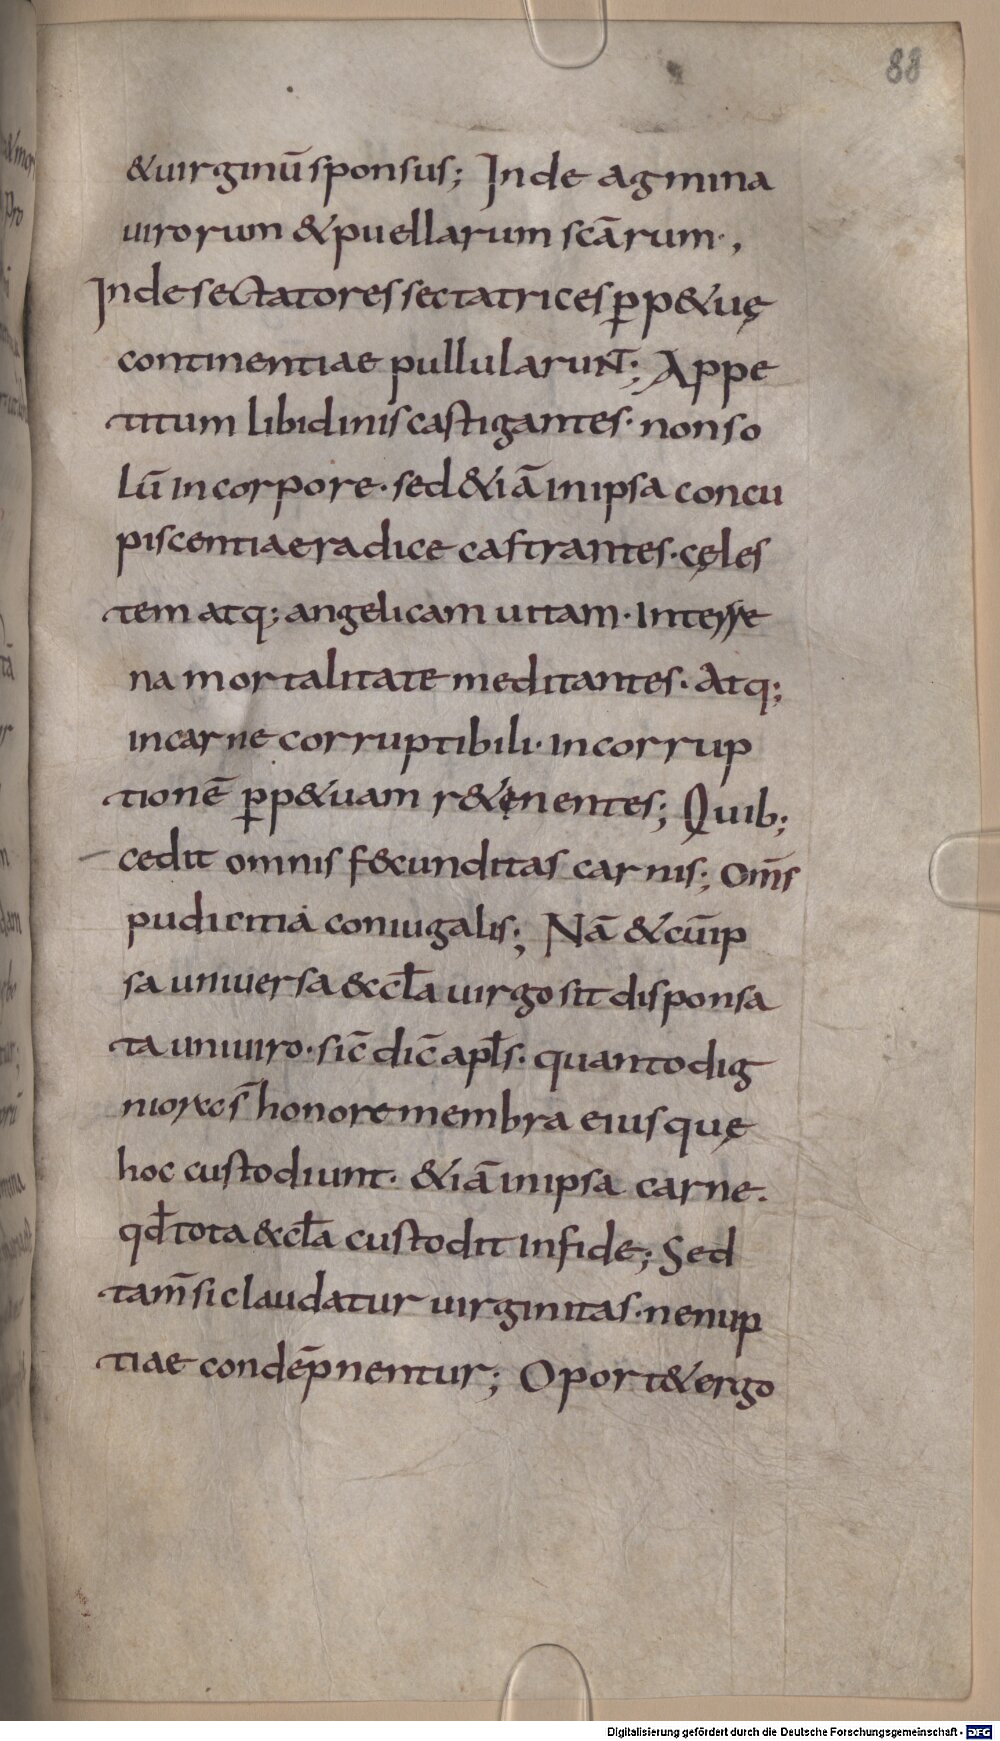 88
&uirginū sponsus; Inde agmina
uirorum &puellarum scārum·,
Inde sectatores sectatrices p̄p&uę
continentiae pullularunt; Appe
titum libidinis castigantes· non so
lū in corpore· sed &iā in ipsa concu
piscentiae radice castrantes· cęles
tem atq; angelicam uitam· In terre
na mortalitate meditantes· Atq;
in carne corruptibili· incorrup
tionē p̄p&uam r&ęnentes; Quib;
cedit omnis fecunditas carnis; Om̄s
pudicitia coniugalis; Nā &cū ip
sa uniuersa &ccl̄a uirgo sit disponsa
ta uni uiro· sic̄ dic̄ apl̄s· quanto dig
niores̄ honore membra eius quę
hoc custodiunt· &iā in ipsa carne·
qd̄ tota &ccl̄a custodit in fide; Sed
tam̄ sic laudatur uirginitas· ne nup
tiae condēpnentur; Oport& ergo
Digitalisierung gefördert durch die Deutsche Forschungsgemeinschaft - DFG